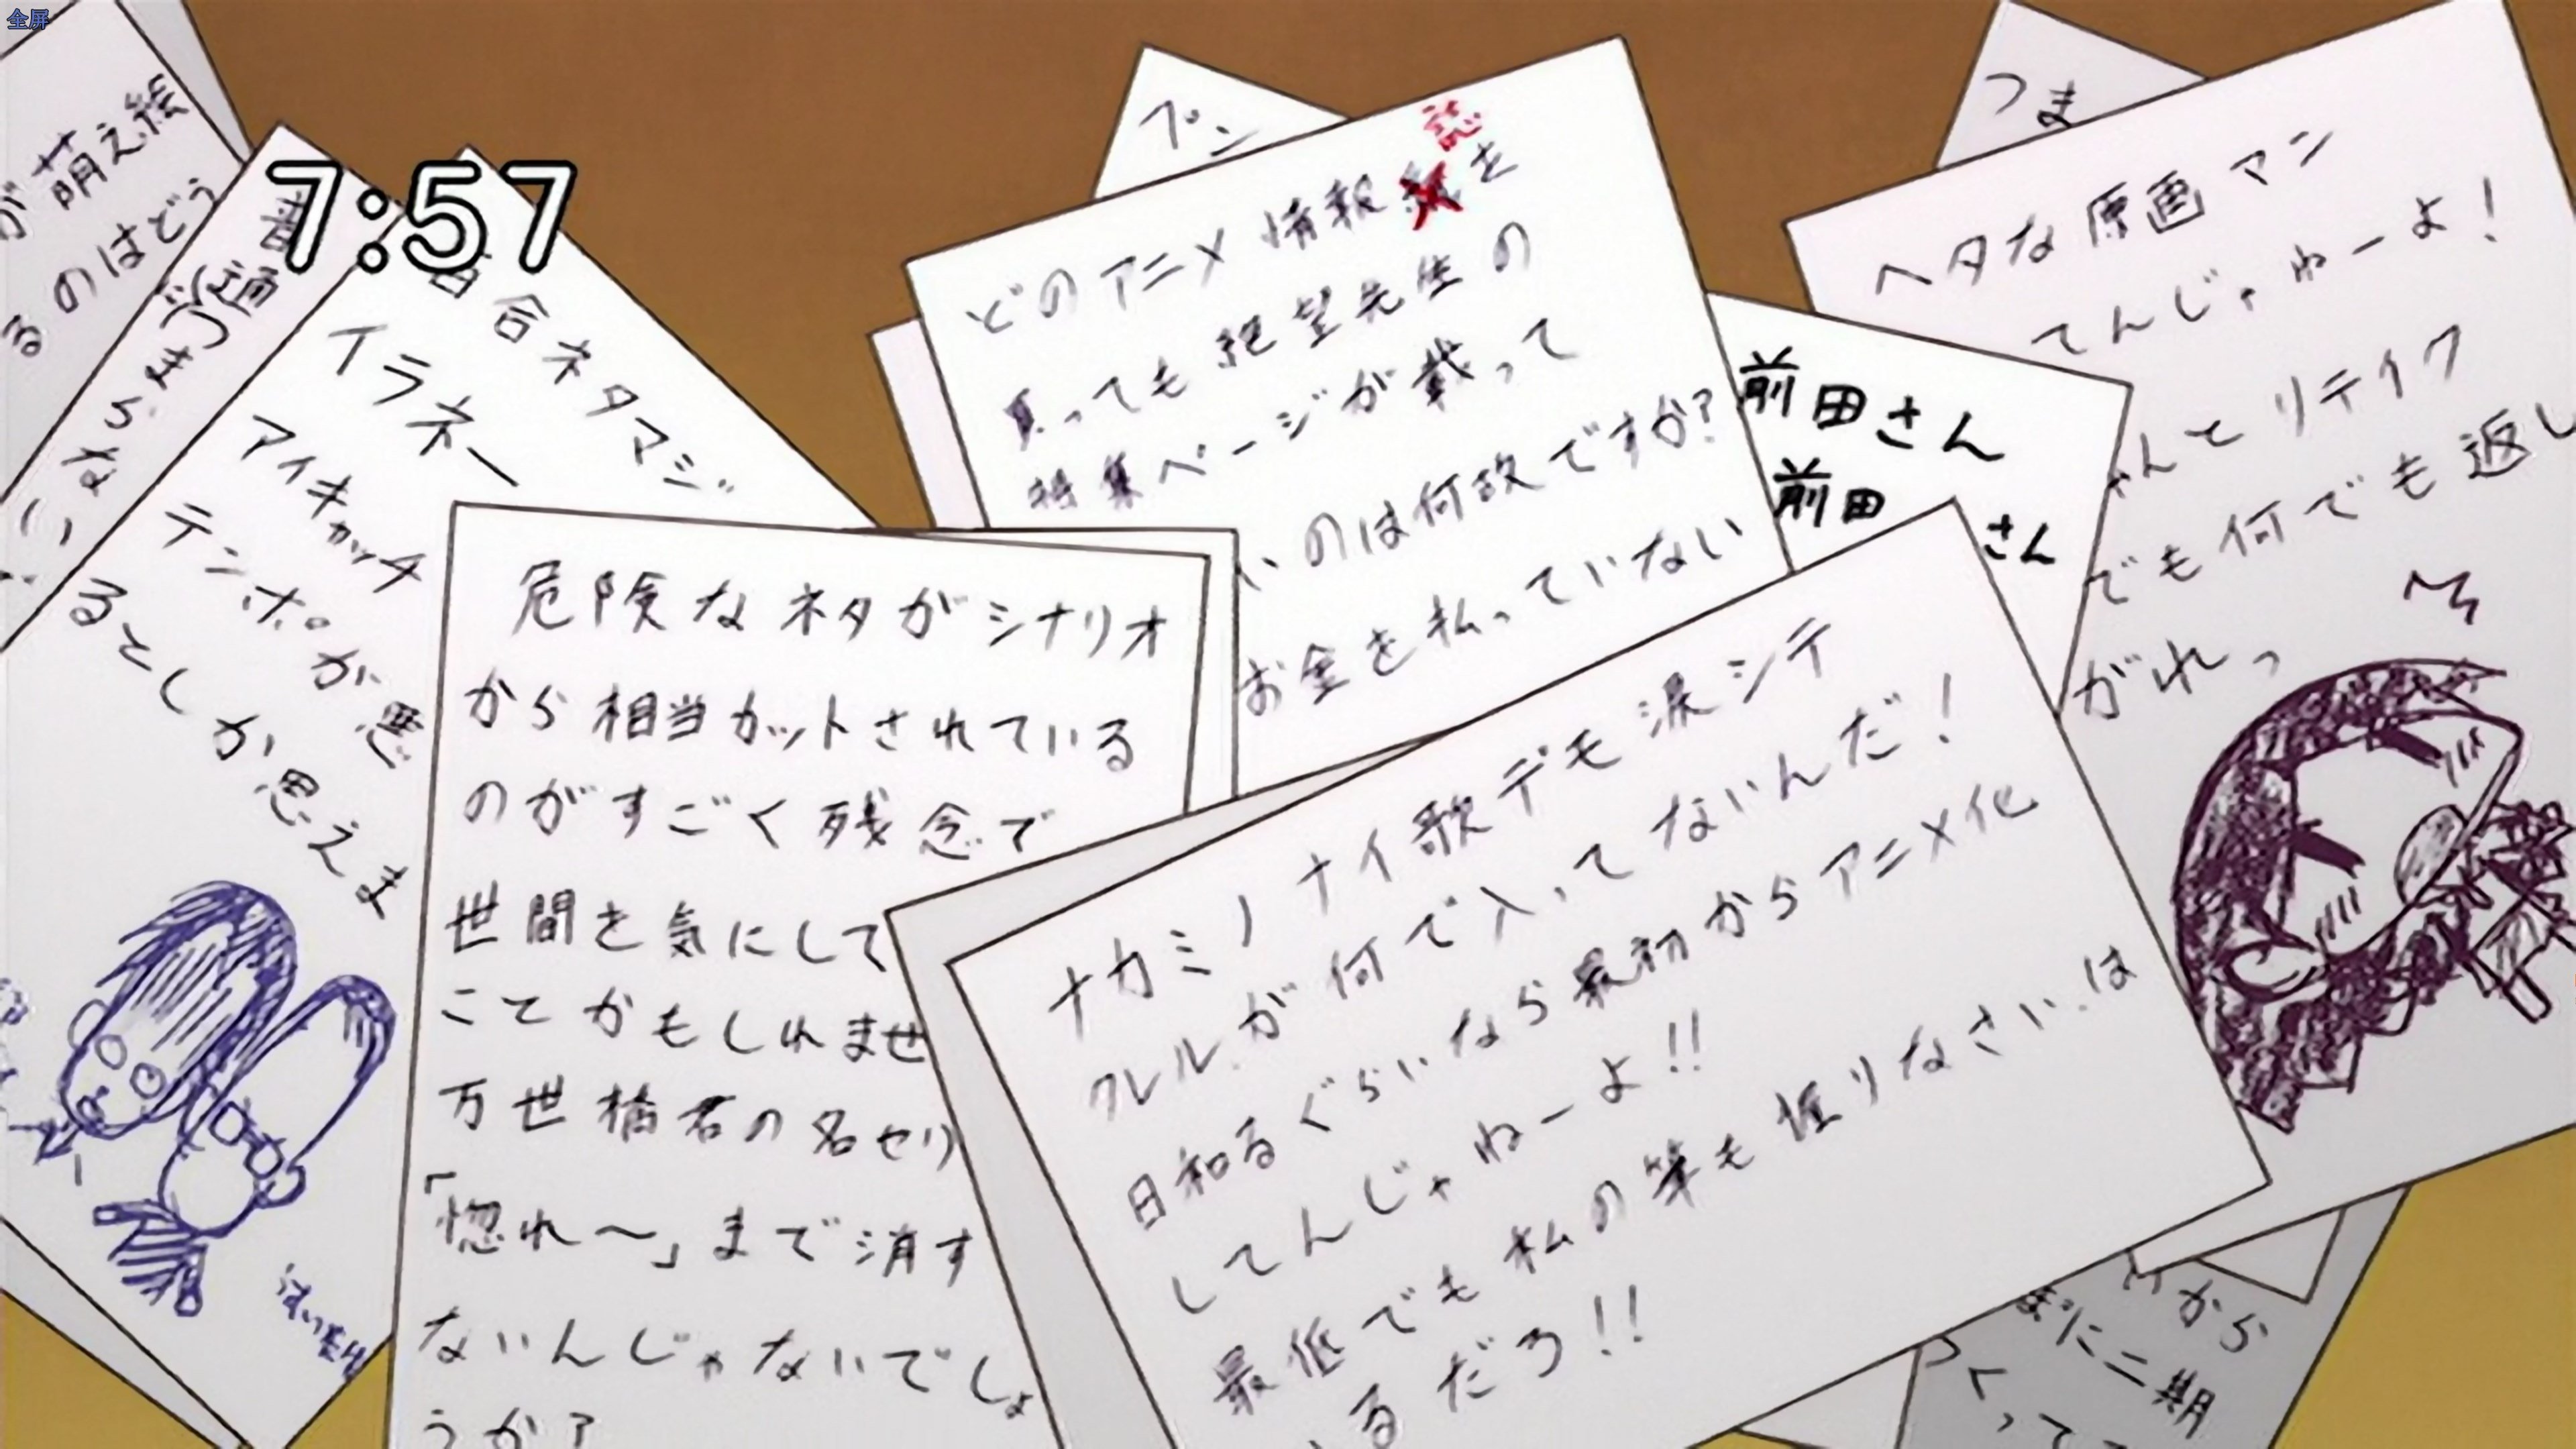 全屏
7:57
が萌え絵
るのはどう
普通
つまらない
百合ネタマジ
イラネー
アイキャッチ
テンポが悪
るとしか思えま
危険なネタがシナリオ
から相当カットされている
のがすごく残念で
世間を気にして
ことかもしれませ
万世橋君の名セリ
「惚れ〜」まで消す
ないんじゃないでしょ
うか?
プン
誌
どのアニメ情報を
買っても絶望先生の
特集ページが載って
いのは何故ですか?
お金を払っていない
前田さん
前田さん
つま
ヘタな原画マン
てんじゃねーよ!
ゃんとリテイク
でも何でも返し
がれっ
ナカミノナイ歌デモ涙シテ
クレルが何で入ってないんだ!
日和るぐらいなら最初からアニメ化
してんじゃねーよ!!
最低でも私の筆も握りなさいは
るだろ!!
から
まに二期
つくって